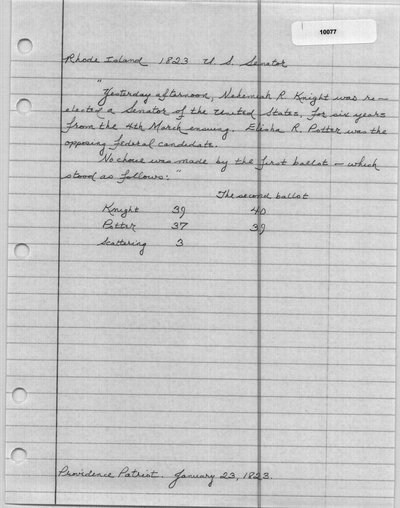 10077
Rhode Island 1823 U. S. Senator
"Yesterday afternoon, Nehemiah R. Knight was re-
elected a Senator of the United States, for six years
from the 4th March ensuing. Elisha R. Potter was the
opposing federal candidate.
No choice was made by the first ballot - which
stood as follows: "
The second ballot
Knight 39 40
Potter 37 39
Scattering 3
Providence Patriot. January 23, 1823.